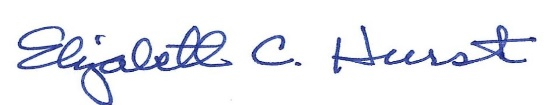 Elizabeth C. Hurst